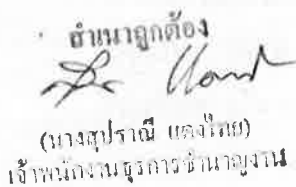 สำเนาถูกต้อง
(นางสุปราณี แดงไทย)
เจ้าพนักงานธุรการชำนาญงาน